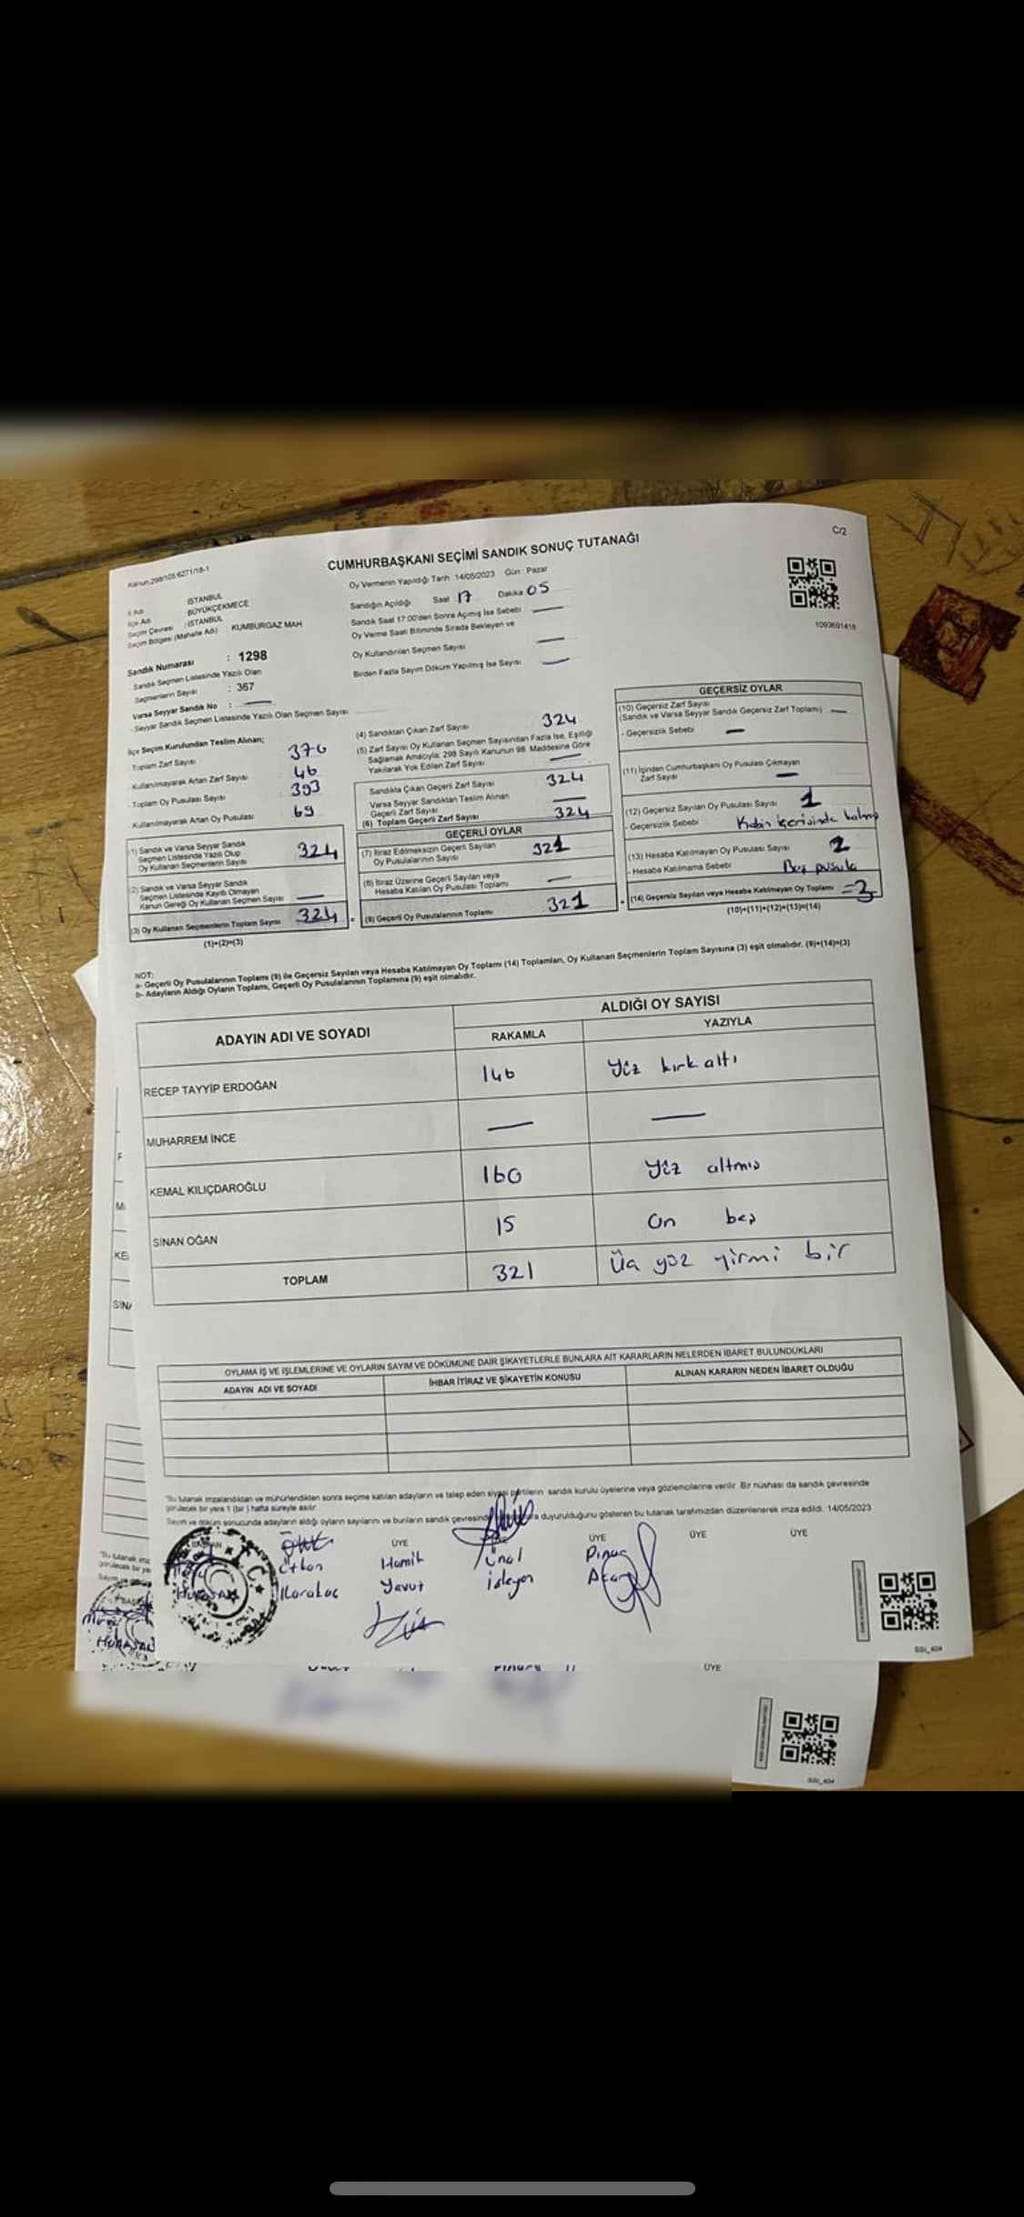 CUMHURBAŞKANI SEÇİMİ SANDIK SONUÇ TUTANAĞI
C/2
Kanun,298/105 6271/18-1
İl Adı : İSTANBUL
İlçe Adı : BÜYÜKÇEKMECE
Seçim Çevresi : İSTANBUL
Seçim Bölgesi (Mahalle Adı) KUMBURGAZ MAH
Sandık Numarası : 1298
Sandık Seçmen Listesinde Yazılı Olan
Seçmenlerin Sayısı : 367
Varsa Seyyar Sandık No : —
-Seyyar Sandık Seçmen Listesinde Yazılı Olan Seçmen Sayısı
Oy Vermenin Yapıldığı Tarih 14/05/2023 Gün : Pazar
Sandığın Açıldığı Saat 17 Dakika 05
Sandık Saat 17:00'den Sonra Açılmış İse Sebebi —
Oy Verme Saati Bitiminde Sırada Bekleyen ve
Oy Kullandırılan Seçmen Sayısı —
Birden Fazla Sayım Döküm Yapılmış İse Sayısı —
1093691418
İlçe Seçim Kurulundan Teslim Alınan;
Toplam Zarf Sayısı 370
-Kullanılmayarak Artan Zarf Sayısı 46
- Toplam Oy Pusulası Sayısı 393
- Kullanılmayarak Artan Oy Pusulası 69
(1) Sandık ve Varsa Seyyar Sandık
Seçmen Listesinde Yazılı Olup
Oy Kullanan Seçmenlerin Sayısı 324
(2) Sandık ve Varsa Seyyar Sandık
Seçmen Listesinde Kayıtlı Olmayan
Kanun Gereği Oy Kullanan Seçmen Sayısı —
(3) Oy Kullanan Seçmenlerin Toplam Sayısı 324
(1)+(2)=(3)
(4) Sandıktan Çıkan Zarf Sayısı 324
(5) Zarf Sayısı Oy Kullanan Seçmen Sayısından Fazla İse, Eşitliği
Sağlamak Amacıyla; 298 Sayılı Kanunun 98. Maddesine Göre
Yakılarak Yok Edilen Zarf Sayısı —
Sandıkta Çıkan Geçerli Zarf Sayısı 324
Varsa Seyyar Sandıktan Teslim Alınan
Geçerli Zarf Sayısı —
(6) Toplam Geçerli Zarf Sayısı 324
GEÇERLİ OYLAR
(7) İtiraz Edilmeksizin Geçerli Sayılan
Oy Pusulalarının Sayısı 321
(8) İtiraz Üzerine Geçerli Sayılan veya
Hesaba Katılan Oy Pusulası Toplamı —
(9) Geçerli Oy Pusulalarının Toplamı 321
GEÇERSİZ OYLAR
(10) Geçersiz Zarf Sayısı
(Sandık ve Varsa Seyyar Sandık Geçersiz Zarf Toplamı) —
- Geçersizlik Sebebi —
(11) İçinden Cumhurbaşkanı Oy Pusulası Çıkmayan
Zarf Sayısı —
(12) Geçersiz Sayılan Oy Pusulası Sayısı 1
- Geçersizlik Sebebi Kabin içerisinde kalmış
(13) Hesaba Katılmayan Oy Pusulası Sayısı 2
- Hesaba Katılmama Sebebi Boş pusula
(14) Geçersiz Sayılan veya Hesaba Katılmayan Oy Toplamı = 3
(10)+(11)+(12)+(13)=(14)
NOT:
a- Geçerli Oy Pusulalarının Toplamı (9) ile Geçersiz Sayılan veya Hesaba Katılmayan Oy Toplamı (14) Toplamları, Oy Kullanan Seçmenlerin Toplam Sayısına (3) eşit olmalıdır. (9)+(14)=(3)
b- Adayların Aldığı Oyların Toplamı, Geçerli Oy Pusulalarının Toplamına (9) eşit olmalıdır.
ADAYIN ADI VE SOYADI
ALDIĞI OY SAYISI
RAKAMLA YAZIYLA
RECEP TAYYİP ERDOĞAN 146 Yüz kırk altı
MUHARREM İNCE — —
KEMAL KILIÇDAROĞLU 160 Yüz altmış
SİNAN OĞAN 15 On beş
TOPLAM 321 Üç yüz yirmi bir
OYLAMA İŞ VE İŞLEMLERİNE VE OYLARIN SAYIM VE DÖKÜMÜNE DAİR ŞİKAYETLERLE BUNLARA AİT KARARLARIN NELERDEN İBARET BULUNDUKLARI
ADAYIN ADI VE SOYADI İHBAR İTİRAZ VE ŞİKAYETİN KONUSU ALINAN KARARIN NEDEN İBARET OLDUĞU
"Bu tutanak imzalandıktan ve mühürlendikten sonra seçime katılan adayların ve talep eden siyasi partilerin sandık kurulu üyelerine veya gözlemcilerine verilir. Bir nüshası da sandık çevresinde
görülecek bir yere 1 (bir ) hafta süreyle asılır
Sayım ve döküm sonucunda adayların aldığı oyların sayılarını ve bunların sandık çevresinde duyurulduğunu gösteren bu tutanak tarafımızdan düzenlenerek imza edildi. 14/05/2023
ÜYE ÜYE ÜYE ÜYE
Hamit Ünal Pınar
Karakaş Yavuz İşleyen
T.C.
SSİ_404
ÜYE
SSİ_404